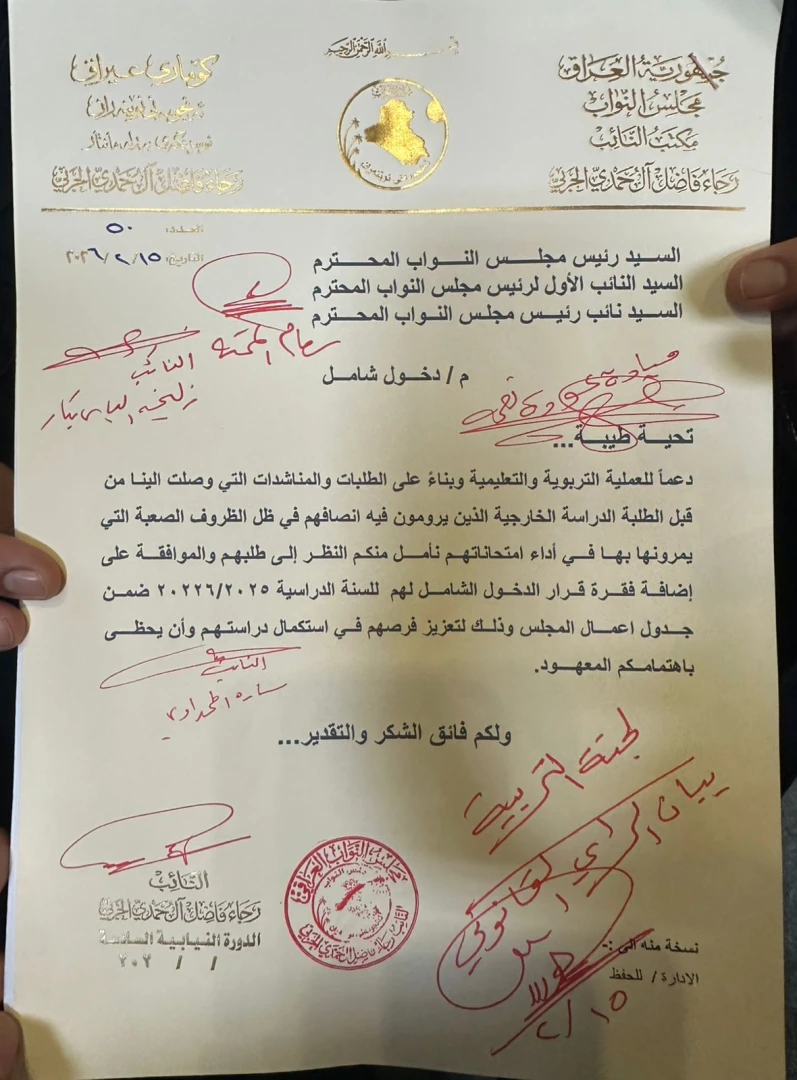 بسم الله الرحمن الرحيم
جمهورية العراق
مجلس النواب
مكتب النائب
رجاء فاضل آل حمدي الحربي
كۆماری عێراق
رجاء فاضل آل حمدي الحربي
العدد: ٥٠
التاريخ: ٢٠٢٦/٢/١٥
السيد رئيس مجلس النواب المحترم
السيد النائب الأول لرئيس مجلس النواب المحترم
السيد نائب رئيس مجلس النواب المحترم
النائب
م / دخول شامل
تحية طيبة...
دعماً للعملية التربوية والتعليمية وبناءً على الطلبات والمناشدات التي وصلت الينا من
قبل الطلبة الدراسة الخارجية الذين يرومون فيه انصافهم في ظل الظروف الصعبة التي
يمرونها بها في أداء امتحاناتهم نأمل منكم النظر إلى طلبهم والموافقة على
إضافة فقرة قرار الدخول الشامل لهم للسنة الدراسية ٢٠٢٢٦/٢٠٢٥ ضمن
جدول اعمال المجلس وذلك لتعزيز فرصهم في استكمال دراستهم وأن يحظى
باهتمامكم المعهود.
النائب
ولكم فائق الشكر والتقدير...
لجنة التربية
بيان الرأي القانوني
٢/١٥
مجلس النواب العراقي
النائب
رجاء فاضل آل حمدي الحربي
الدورة النيابية السادسة
/ / ٢٠٢
نسخة منه الى :-
الادارة / للحفظ